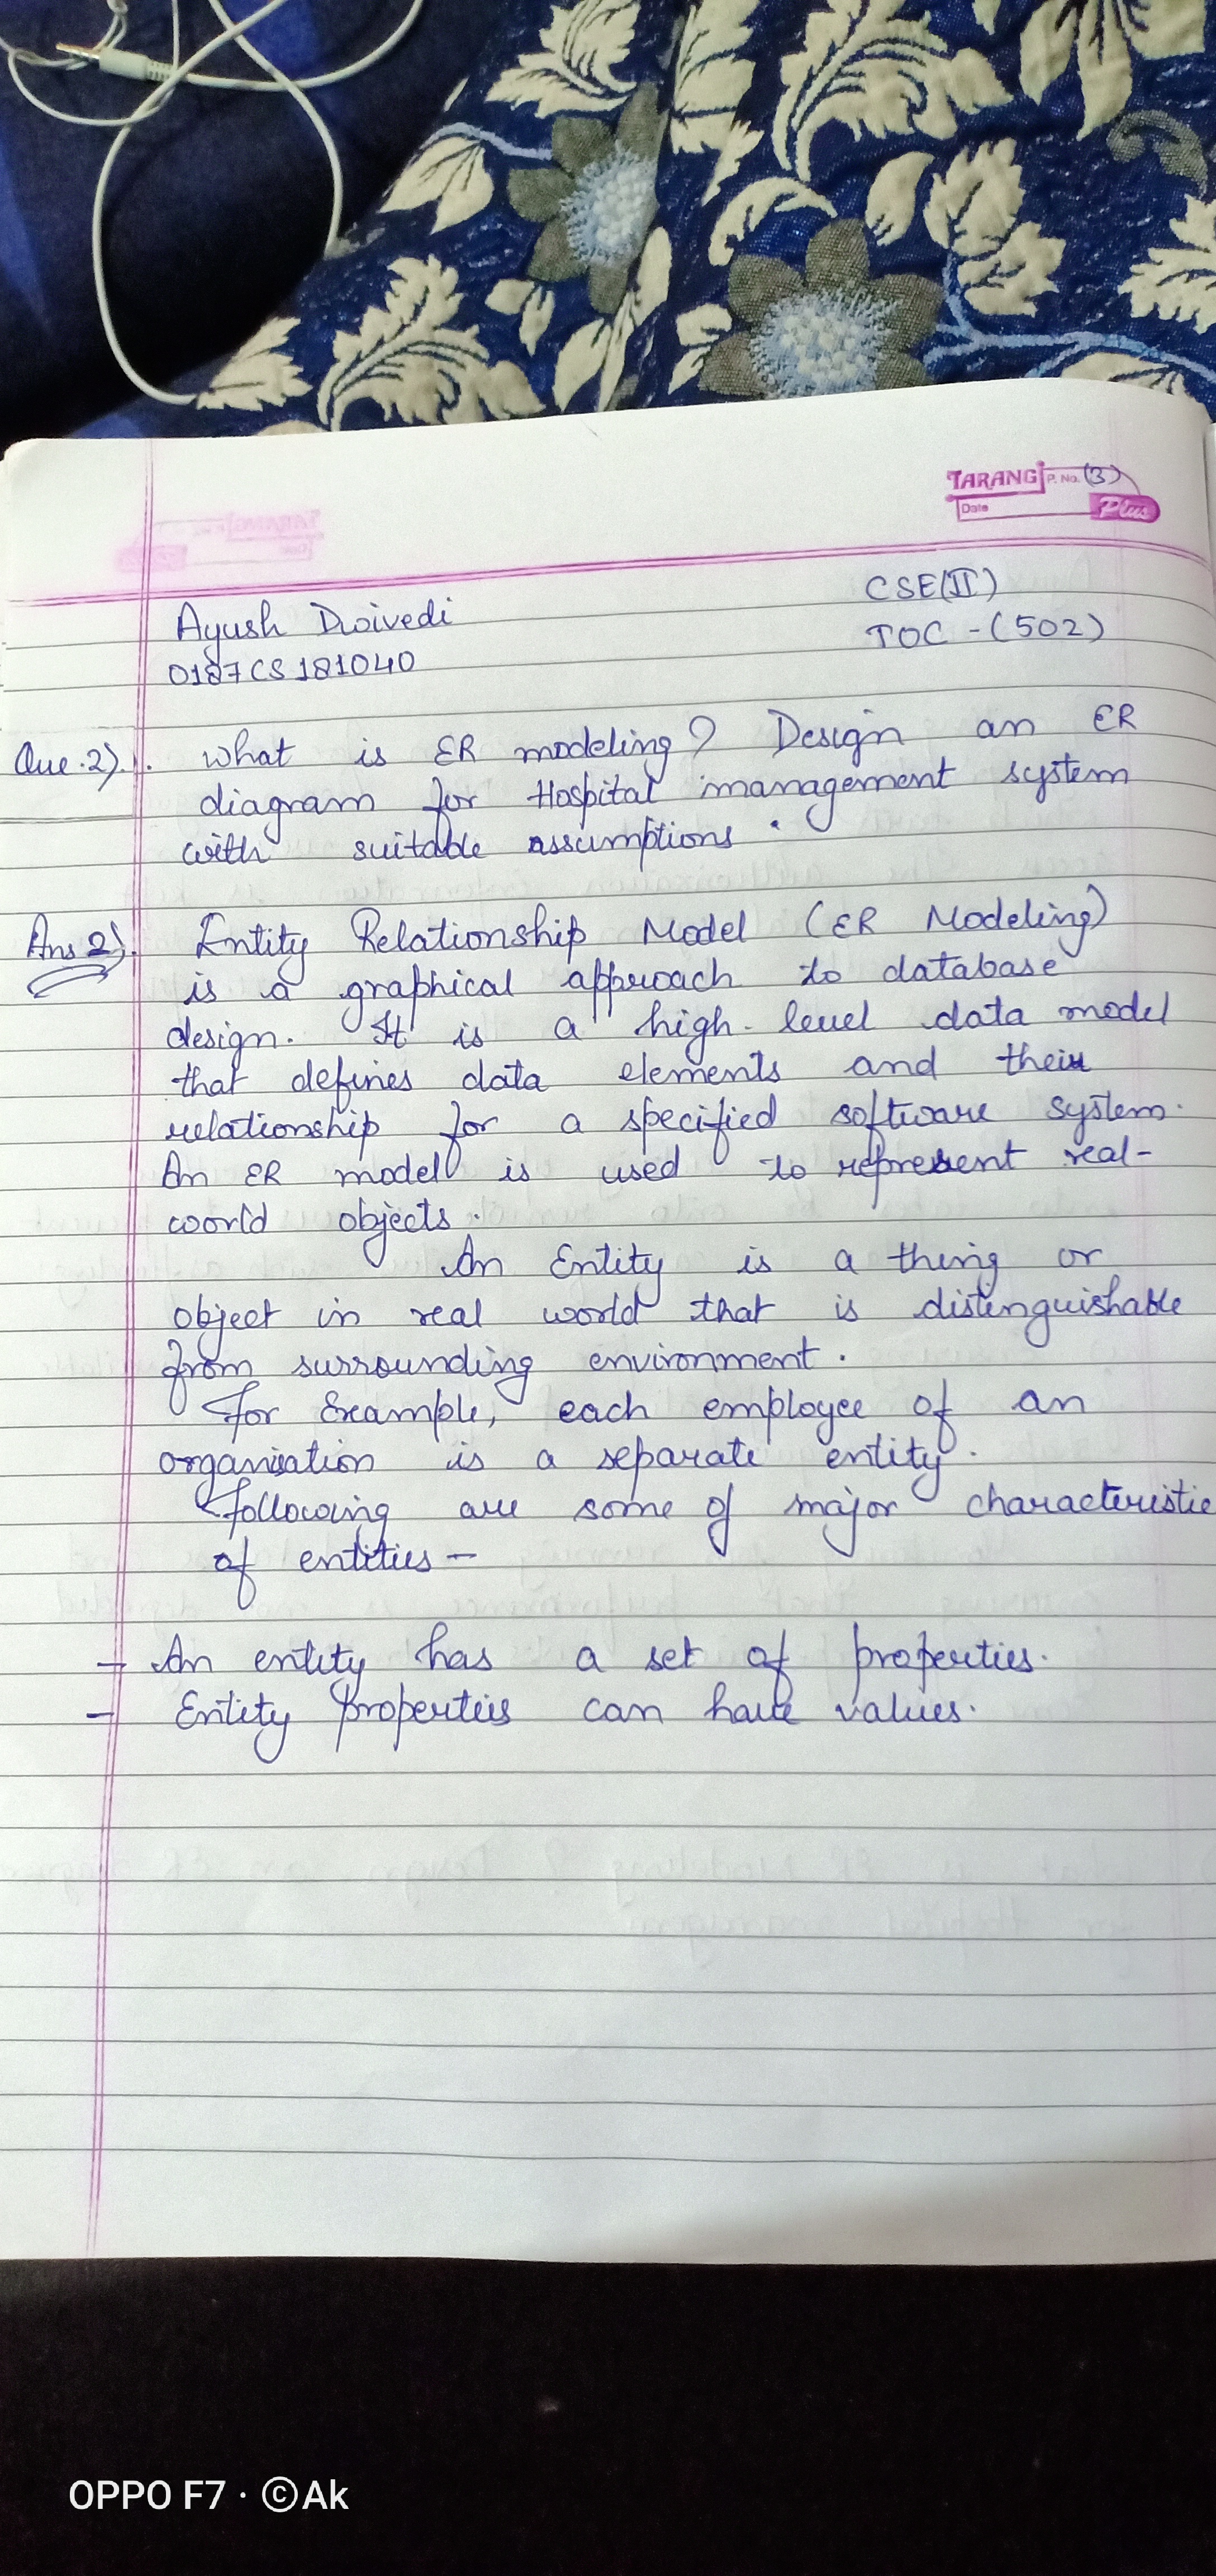 TARANG P. No. (3)
Date Plus
Ayush Dwivedi CSE(II)
0187CS181040 TOC - (502)
Que.2). What is ER modeling? Design an ER
diagram for Hospital management system
with suitable assumptions.
Ans 2). Entity Relationship Model (ER Modeling)
is a graphical approach to database
design. It is a high-level data model
that defines data elements and their
relationship for a specified software system.
An ER model is used to represent real-
world objects.
An Entity is a thing or
object in real world that is distinguishable
from surrounding environment.
For Example, each employee of an
organisation is a separate entity.
Following are some of major characteristic
of entities -
- An entity has a set of properties.
- Entity properties can have values.
OPPO F7 · ©Ak